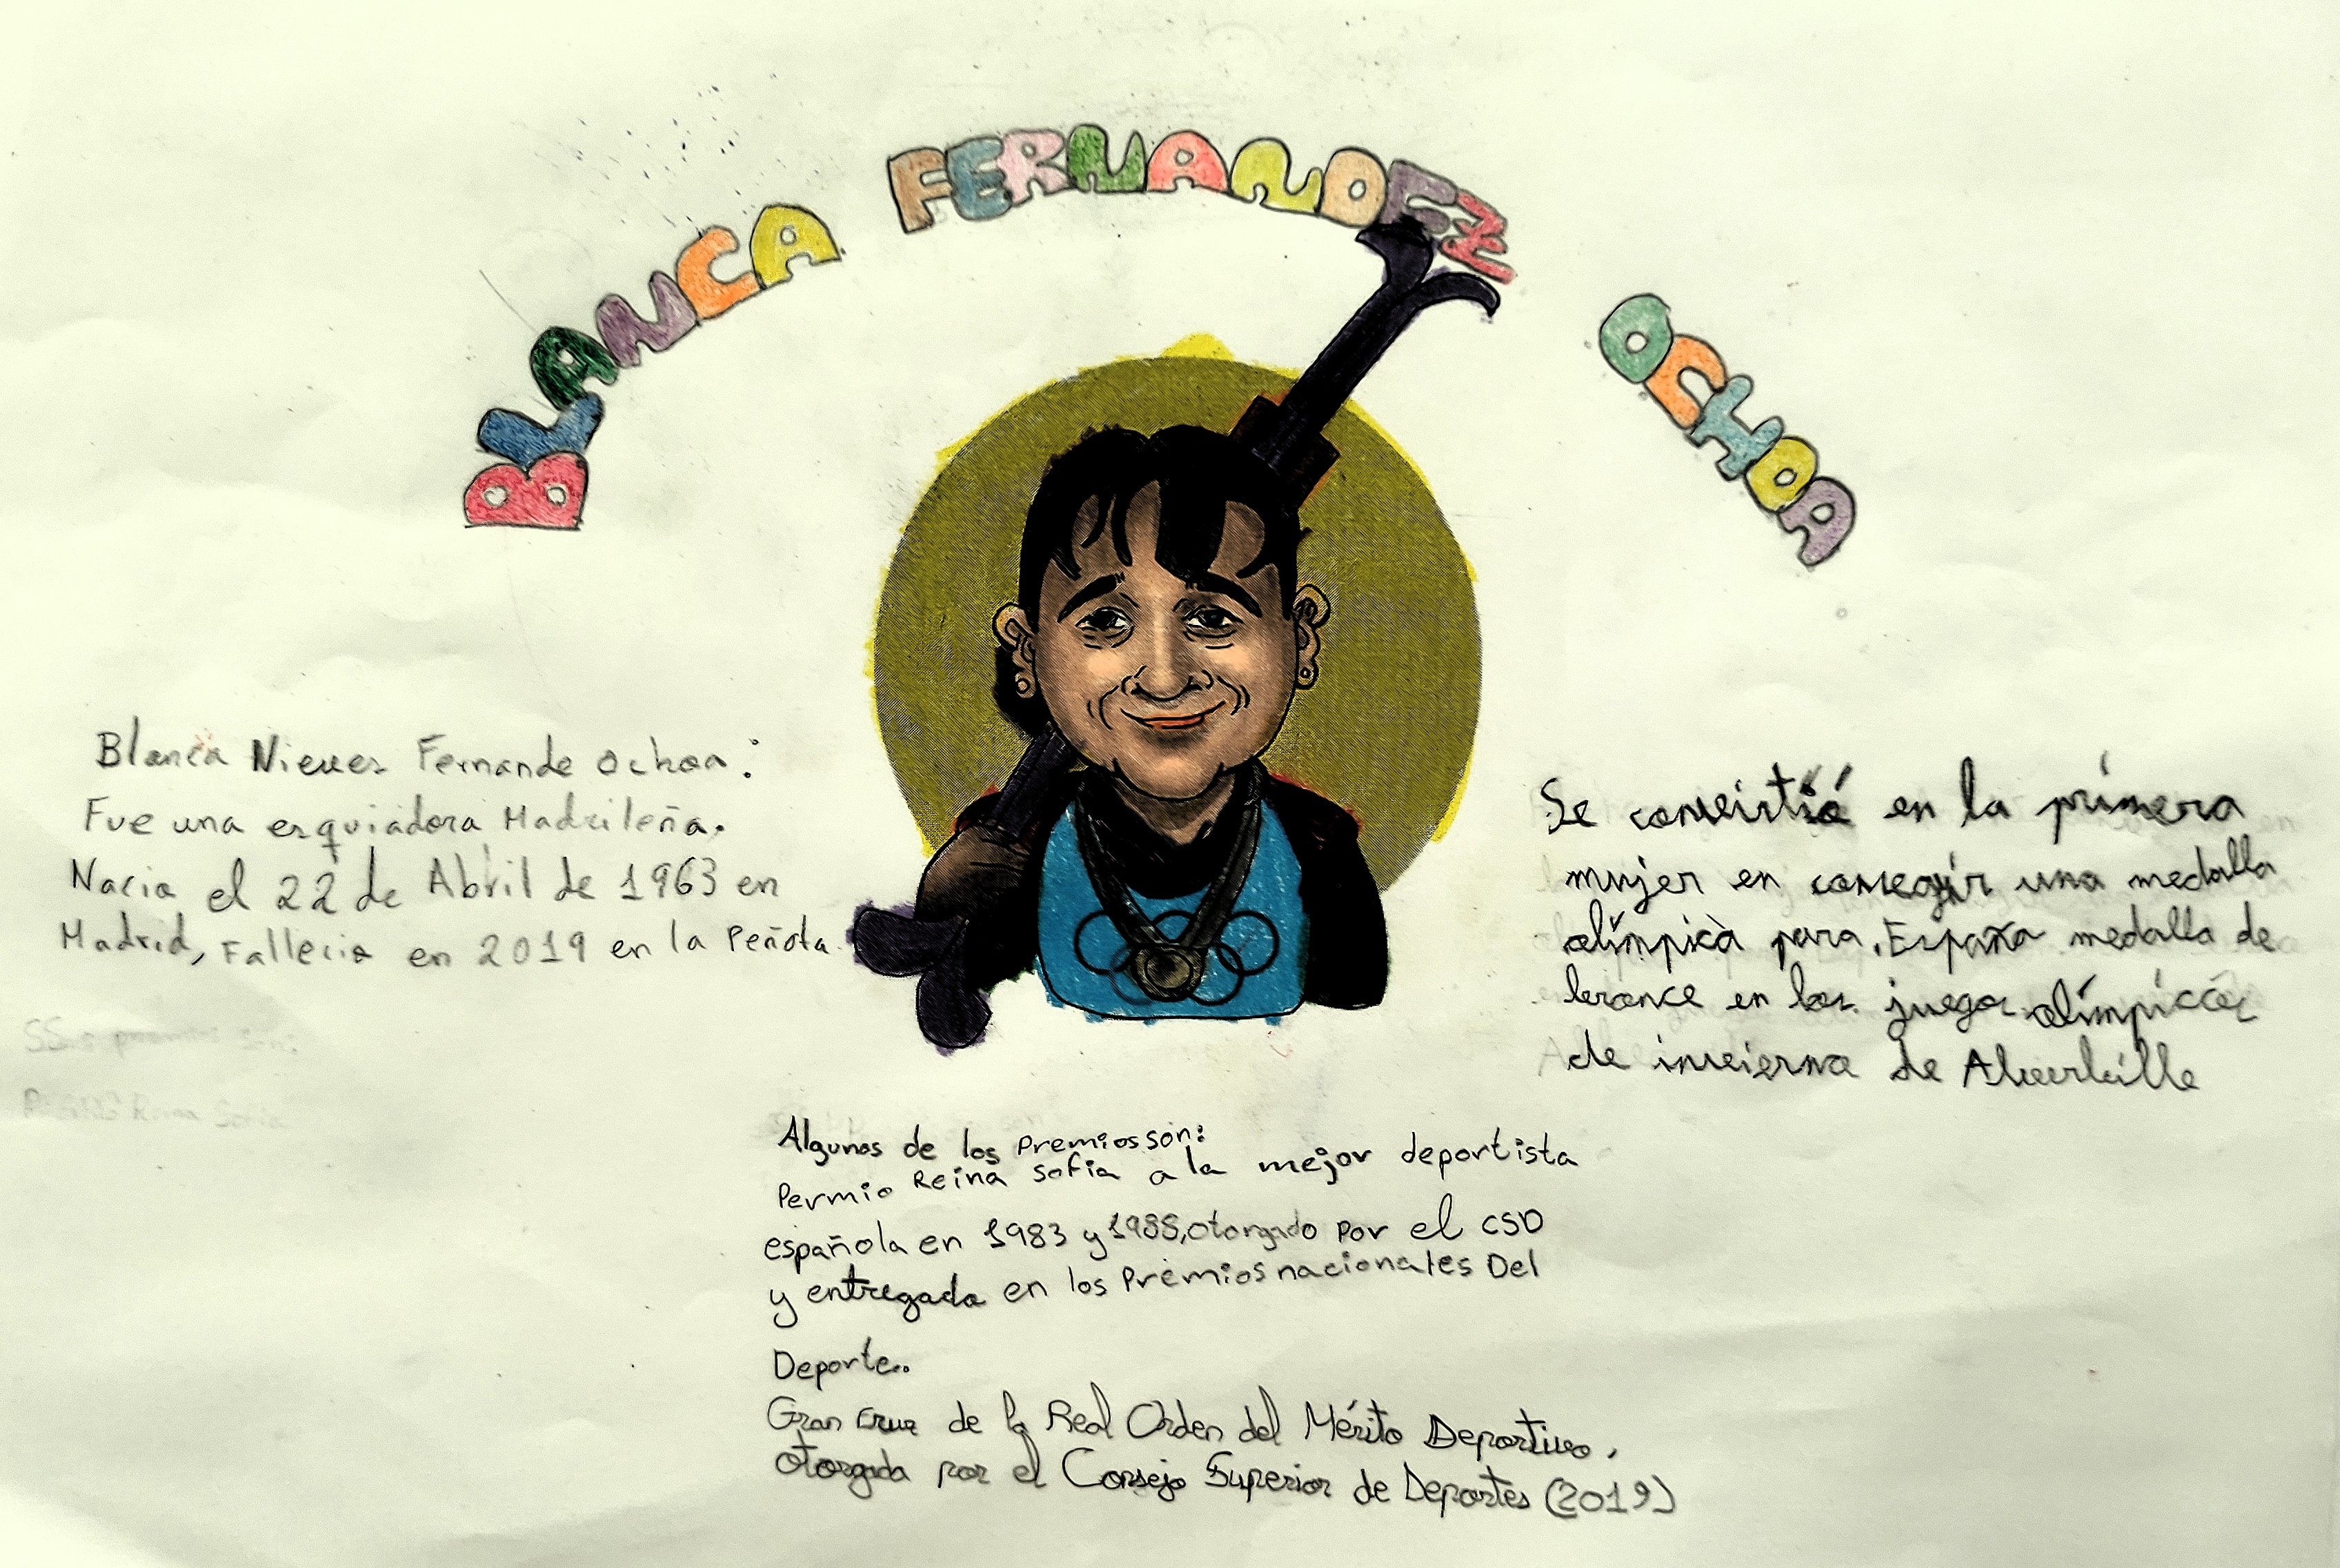 BLANCA FERNANDEZ OCHOA
Blanca Nieves Fernande Ochoa:
Fue una esquiadora Madrileña.
Nacia el 22 de Abril de 1963 en
Madrid, Fallecia en 2019 en la Peñota
Se conveirtió en la primera
mujer en consegir una medalla
olímpica para España medalla de
bronce en los juegos olímpicos
de inveierno de Alverbille
Algunos de los premios son:
Permio Reina Sofia a la mejor deportista
española en 1983 y 1988, otorgado por el CSD
y entregado en los Premios nacionales Del
Deporte..
Gran Cruz de la Real Orden del Mérito Deportivo,
otorgada por el Consejo Superior de Deportes (2019)